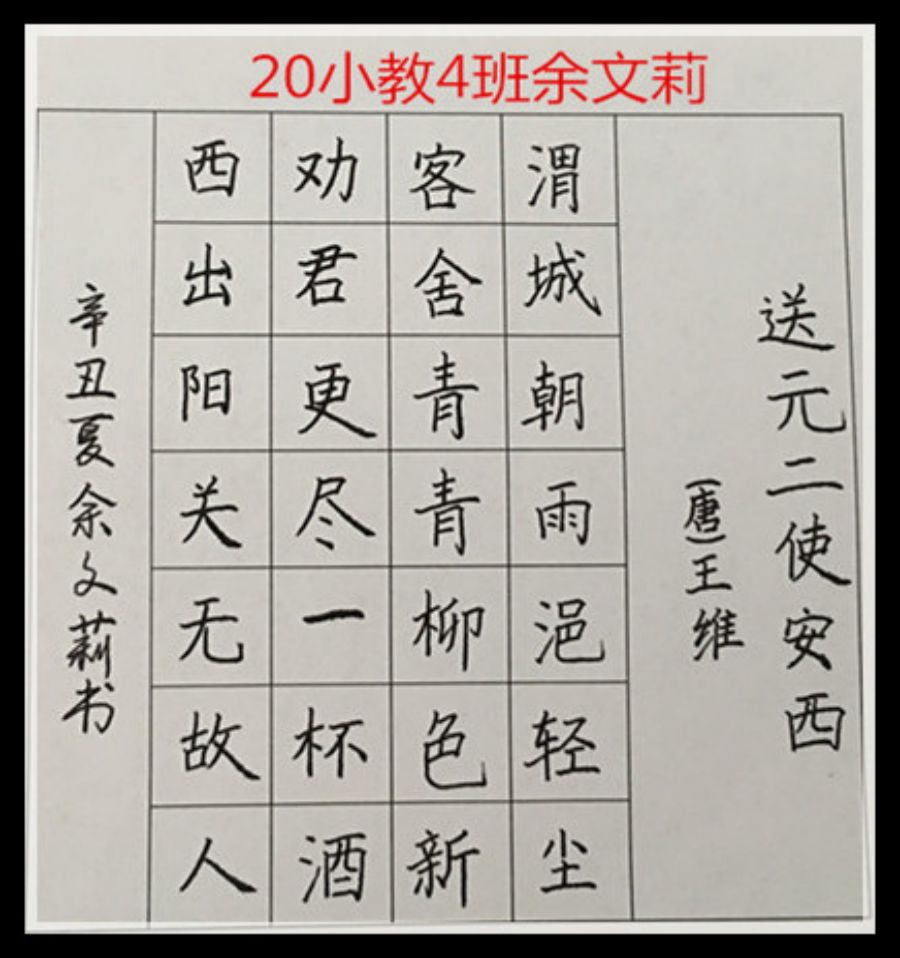 20小教4班余文莉
送元二使安西
(唐)王维
渭城朝雨浥轻尘
客舍青青柳色新
劝君更尽一杯酒
西出阳关无故人
辛丑夏余文莉书